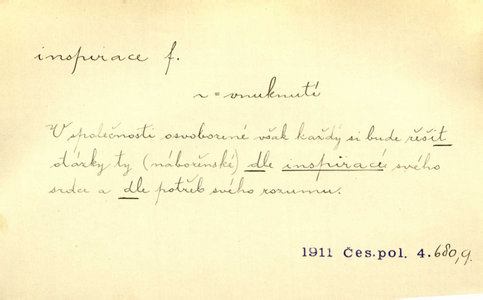 inspirace f.
~ = vnuknutí
V společnosti osvobozené však každý si bude řešit
otázky ty (náboženské) dle inspirací svého
srdce a dle potřeb svého rozumu.
1911 Čes. pol. 4. 680, 9.